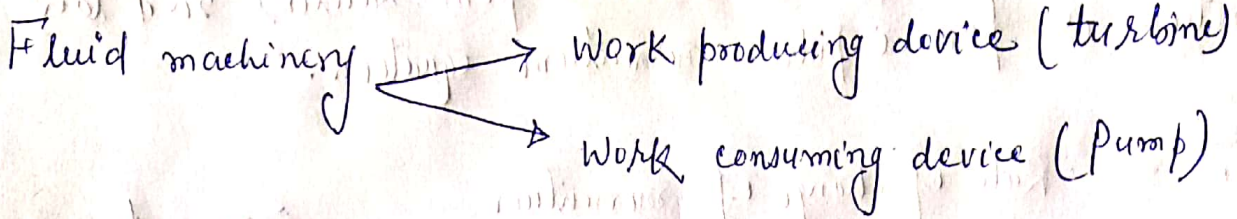 Fluid machinery → Work producing device (turbine)
→ Work consuming device (Pump)